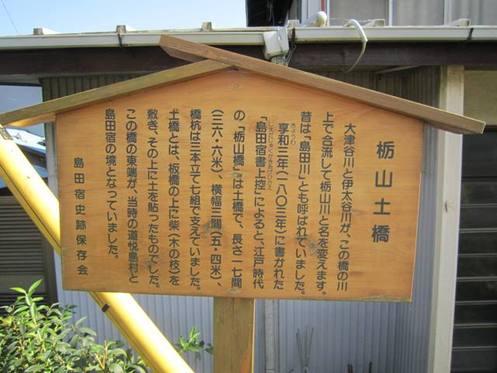 栃山土橋
大津谷川と伊太谷川が、この橋の川
上で合流して栃山川と名を変えます。
昔は、「島田川」とも呼ばれていました。
享和三年(一八〇三年)に書かれた
「島田宿書上控」によると、江戸時代
の「栃山橋」は土橋で、長さ一七間
(三六・六米)、横幅三間(五・四米)、
橋杭は三本立て七組で支えていました。
土橋とは、板橋の上に柴(木の枝)を
敷き、その上に土を貼ったものでした。
この橋の東端が、当時の道悦島村と
島田宿の境となっていました。
島田宿史跡保存会